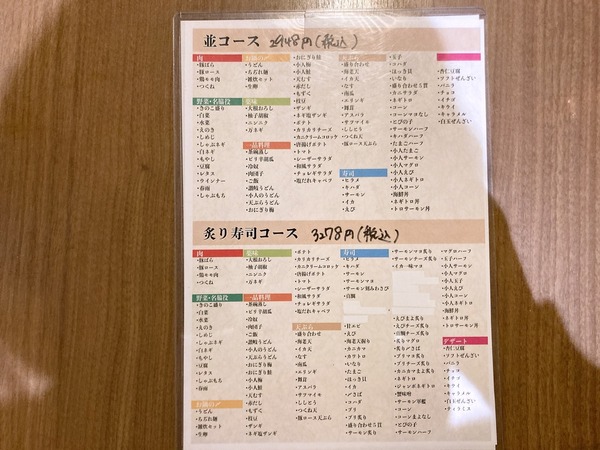 並コース 2948円(税込)
肉
・豚ばら
・豚ロース
・鶏モモ肉
・つくね
野菜・名脇役
・きのこ盛り
・白菜
・水菜
・えのき
・しめじ
・しゃぶネギ
・白ネギ
・もやし
・豆腐
・レタス
・ウインナー
・春雨
・しゃぶもち
・うどん
・名古れ麺
・雑炊セット
・生卵
薬味
・大根おろし
・柚子胡椒
・ニンニク
・万ネギ
一品料理
・茶碗蒸し
・ピリ辛胡瓜
・冷奴
・肉団子
・ご飯
・讃岐うどん
・小人のうどん
・天ぷらうどん
・おにぎり梅
・おにぎり鮭
・小人梅
・小人鮭
・天むす
・赤だし
・もずく
・枝豆
・ザンギ
・ネギ塩ザンギ
・ポテト
・カリカリチーズ
・カニクリームコロッケ
・唐揚げポテト
・トマト
・レーザーサラダ
・和風サラダ
・チョレギサラダ
・塩だれキャベツ
・盛り合わせ
・海老天
・イカ天
・なす
・南瓜
・エリンギ
・舞茸
・アスパラ
・サツマイモ
・ししとう
・つくね天
・豚ロース天ぷら
寿司
・ヒラメ
・キハダ
・サーモン
・イカ
・えび
・玉子
・コハダ
・ほっき貝
・いなり
・盛り合わせ5貫
・カニサラダ
・ネギトロ
・コーン
・コーンマヨなし
・とびの子
・サーモンハーフ
・キハダハーフ
・たまごハーフ
・小人たまご
・小人サーモン
・小人マグロ
・小人えび
・小人ネギトロ
・小人コーン
・海鮮丼
・ネギトロ丼
・トロサーモン丼
・杏仁豆腐
・ソフトぜんざい
・バニラ
・チョコ
・イチゴ
・キウイ
・キャラメル
・白玉ぜんざい
炙り寿司コース 3278円(税込)
肉
・豚ばら
・豚ロース
・鶏モモ肉
・つくね
野菜・名脇役
・きのこ盛り
・白菜
・水菜
・えのき
・しめじ
・しゃぶネギ
・白ネギ
・もやし
・豆腐
・レタス
・しゃぶもち
・春雨
・うどん
・名古れ麺
・雑炊セット
・生卵
薬味
・大根おろし
・柚子胡椒
・ニンニク
・万ネギ
一品料理
・茶碗蒸し
・ピリ辛胡瓜
・冷奴
・肉団子
・ご飯
・讃岐うどん
・小人のうどん
・天ぷらうどん
・おにぎり梅
・おにぎり鮭
・小人梅
・小人鮭
・天むす
・赤だし
・もずく
・枝豆
・ザンギ
・ネギ塩ザンギ
・ポテト
・カリカリチーズ
・カニクリームコロッケ
・唐揚げポテト
・トマト
・レーザーサラダ
・和風サラダ
・チョレギサラダ
・塩だれキャベツ
天ぷら
・盛り合わせ
・海老天
・イカ天
・なす
・南瓜
・エリンギ
・舞茸
・アスパラ
・サツマイモ
・ししとう
・つくね天
・豚ロース天ぷら
寿司
・ヒラメ
・キハダ
・サーモン
・サーモンマヨ
・サーモン刻みわさび
・真鯛
・甘エビ
・えび
・海老天握り
・カニカマ
・カワトロ
・いなり
・たまご
・ほっき貝
・イカ
・〆さば
・コハダ
・ブリ
・ブリ炙り
・盛り合わせ5貫
・サーモン炙り
・サーモンマヨ炙り
・サーモンチーズ炙り
・イカ一味マヨ
・えびマヨ炙り
・えびチーズ炙り
・真鯛チーズ炙り
・炙りマグロ
・炙り〆さば
・ブリマヨ炙り
・ブリチーズ炙り
・カニカママヨ炙り
・ネギトロ
・ジャンボネギトロ
・蟹味噌
・サーモン軍艦
・コーン
・コーンまよなし
・とびの子
・サーモンハーフ
・マグロハーフ
・玉子ハーフ
・小人サーモン
・小人マグロ
・小人玉子
・小人えび
・小人コーン
・小人ネギトロ
・海鮮丼
・ネギトロ丼
・トロサーモン丼
デザート
・杏仁豆腐
・ソフトぜんざい
・バニラ
・チョコ
・イチゴ
・キウイ
・キャラメル
・白玉ぜんざい
・ティラミス